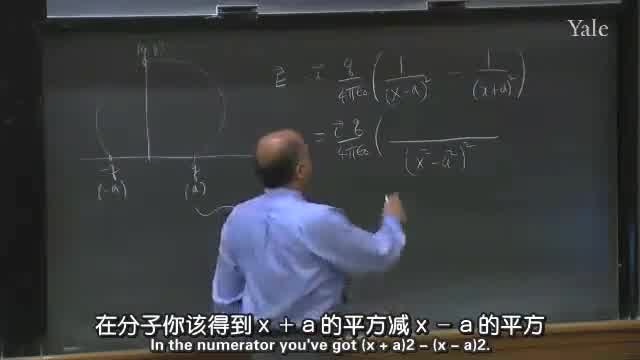 Yale
E = i q/4πε₀ ( 1/(x-a)² - 1/(x+a)² )
= i q/4πε₀ ( /(x²-a²)²
(-a)
(a)
在分子你该得到x+a的平方减x-a的平方
In the numerator you've got (x + a)2 - (x - a)2.